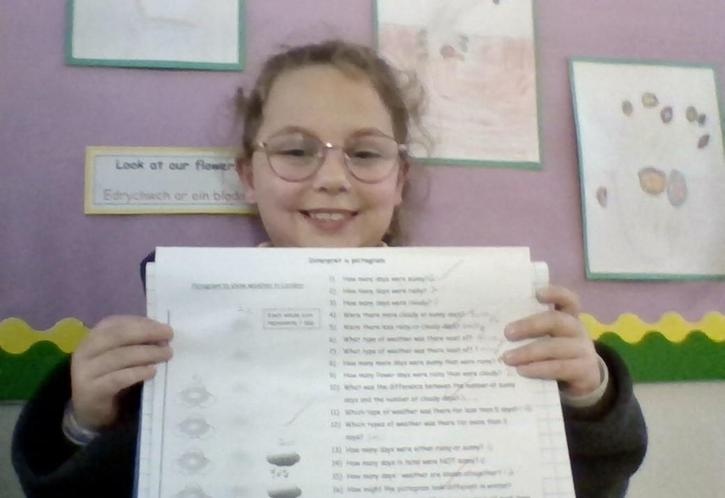 Look at our flower
Edrychwch ar ein bloda
Interpret a pictogram
Pictogram to show weather in London
Each whole sun
represents 1 day
1) How many days were sunny?
2) How many days were rainy?
3) How many days were cloudy?
4) Were there more cloudy or sunny days?
5) Were there less rainy or cloudy days?
6) What type of weather was there most of?
7) What type of weather was there least of?
8) How many more days were sunny than were rainy?
9) How many fewer days were rainy than were cloudy?
10) What was the difference between the number of sunny
days and the number of cloudy days?
11) Which type of weather was there for less than 5 days?
12) Which types of weather was there for more than 5
days?
13) How many days were either rainy or sunny?
14) How many days in total were NOT sunny?
15) How many days' weather are shown altogether?
16) How might the pictogram look different in winter?